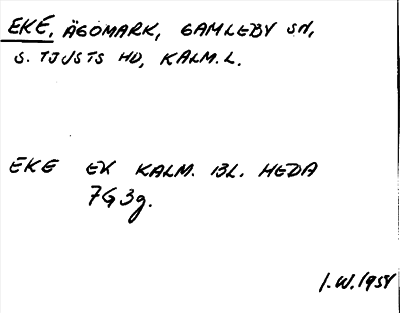 EKE, ÄGOMARK, GAMLEBY SN,
S. TJUSTS HD, KALM. L.
EKE EK KALM. BL. HEDA
7G3g.
I.W. 1954